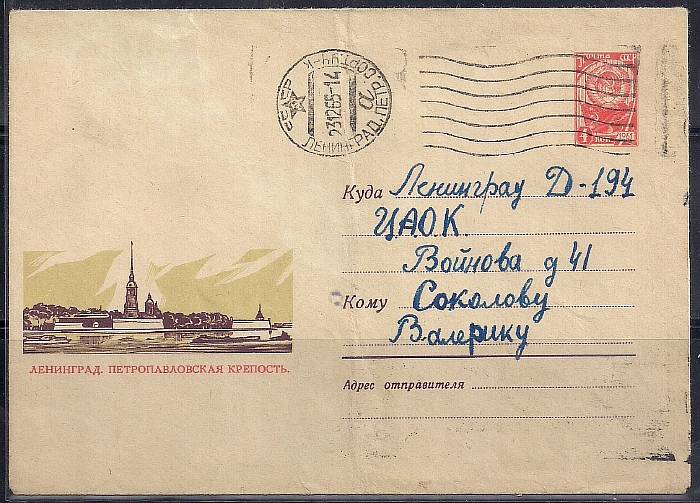 ЛЕНИНГРАД. ПЕТР. СОРТ.
231265-14
а
ПОЧТА СССР
4 КОП.
1961
Куда Ленинград Д-194
ЦАОК
Войнова д 41
Кому Соколову
Валерику
Адрес отправителя
ЛЕНИНГРАД. ПЕТРОПАВЛОВСКАЯ КРЕПОСТЬ.